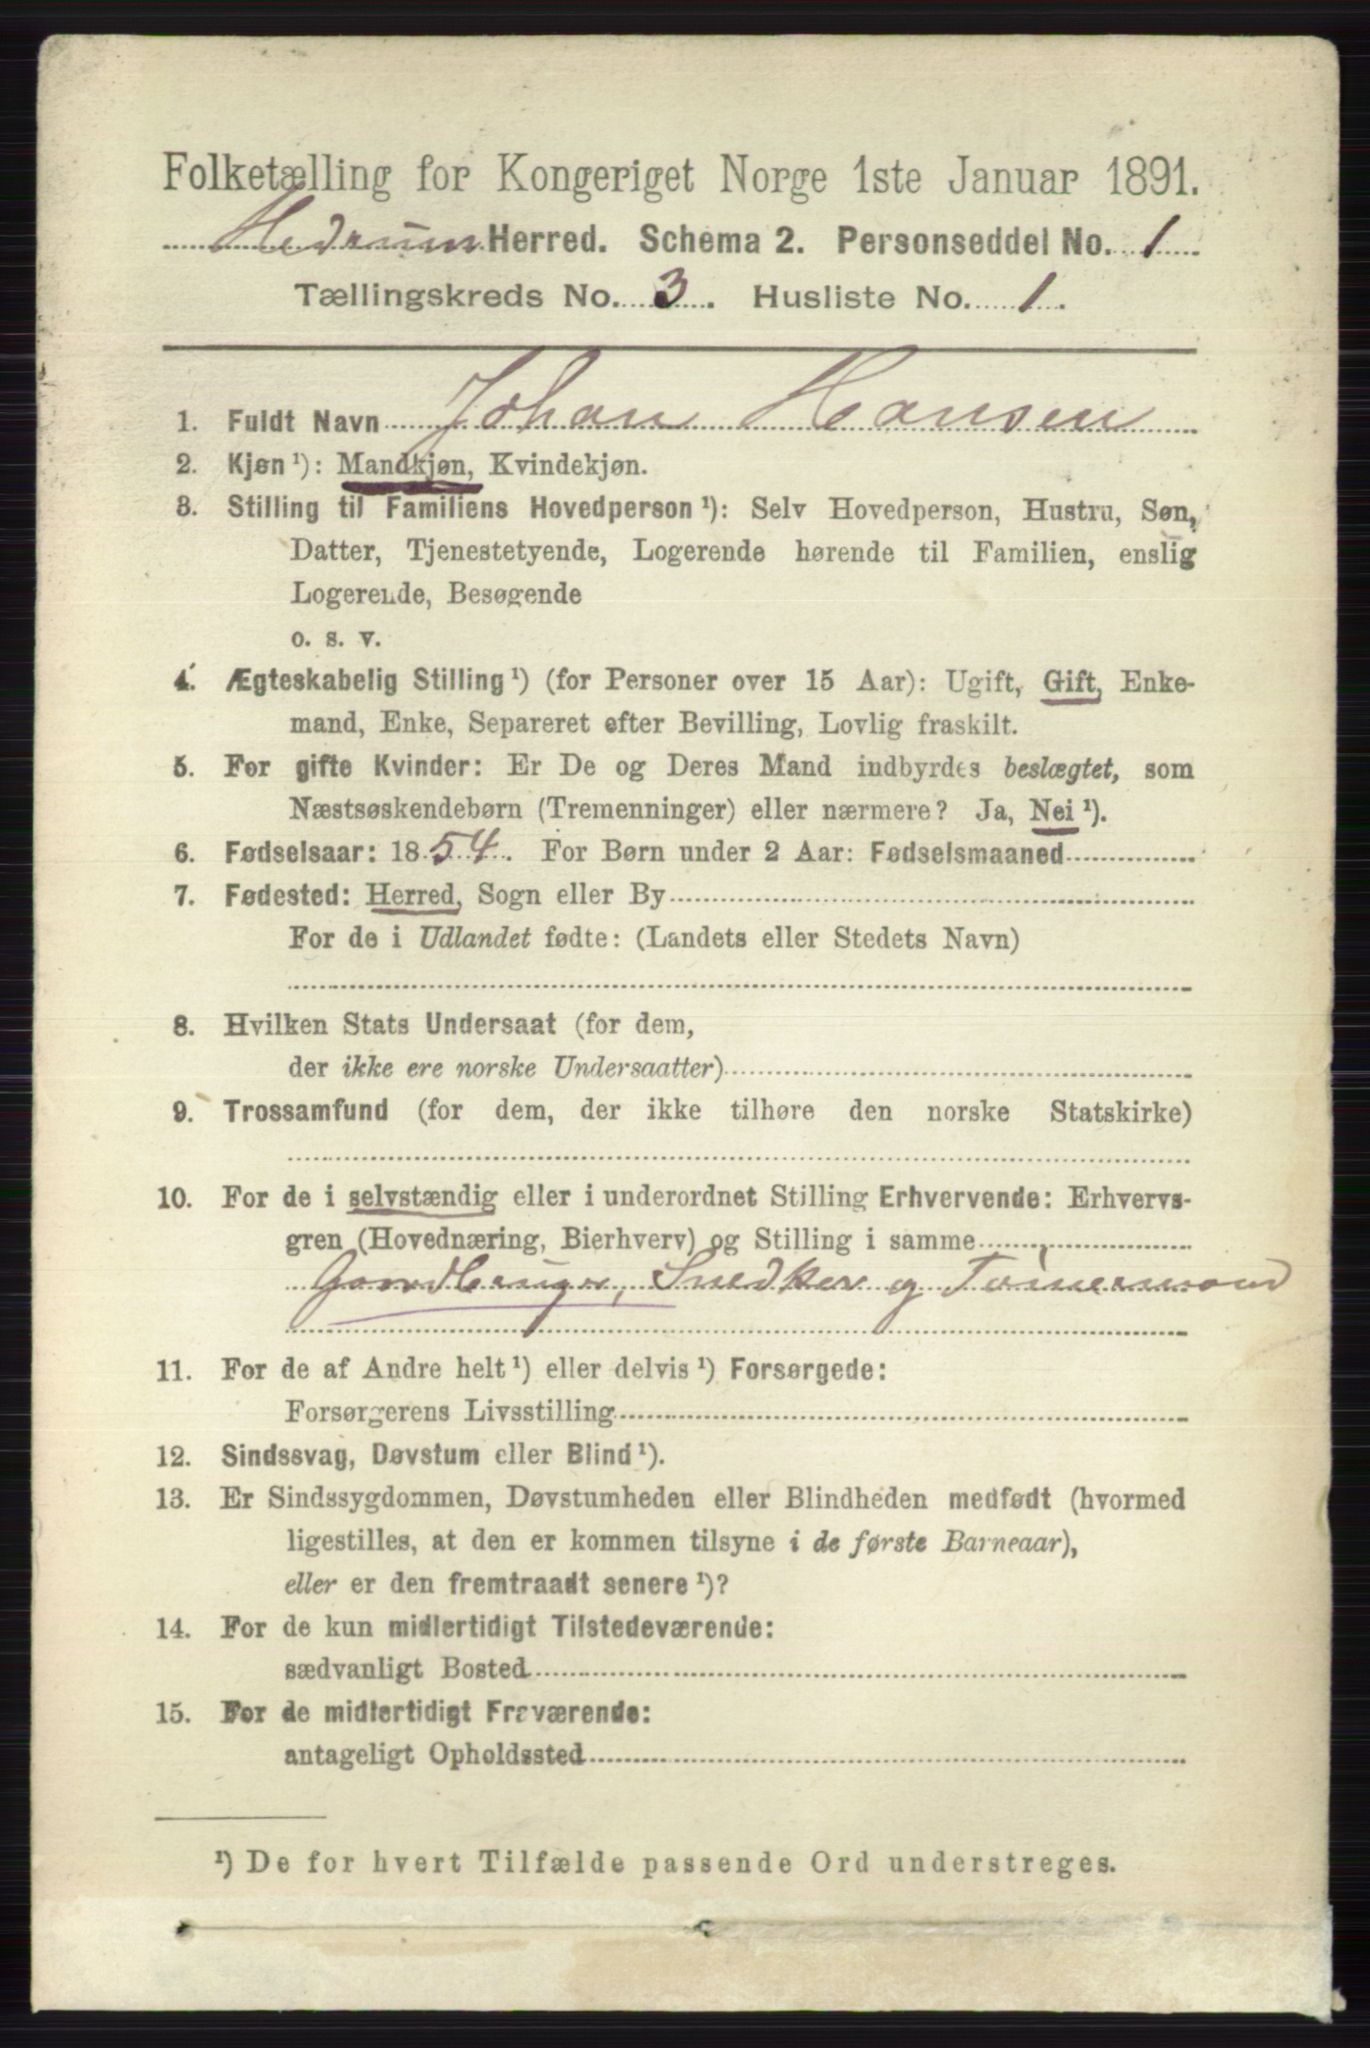 Folketælling for Kongeriget Norge 1ste Januar 1891.
Hedrum Herred. Schema 2. Personseddel No. 1
Tællingskreds No. 3. Husliste No. 1.
1. Fuldt Navn Johan Hansen
2. Kjøn ¹): Mandkjøn, Kvindekjøn.
3. Stilling til Familiens Hovedperson ¹): Selv Hovedperson, Hustru, Søn,
Datter, Tjenestetyende, Logerende hørende til Familien, enslig
Logerende, Besøgende
o. s. v.
4. Ægteskabelig Stilling ¹) (for Personer over 15 Aar): Ugift, Gift, Enke-
mand, Enke, Separeret efter Bevilling, Lovlig fraskilt.
5. For gifte Kvinder: Er De og Deres Mand indbyrdes beslægtet, som
Næstsøskendebørn (Tremenninger) eller nærmere? Ja, Nei ¹).
6. Fødselsaar: 1854. For Børn under 2 Aar: Fødselsmaaned
7. Fødested: Herred, Sogn eller By
For de i Udlandet fødte: (Landets eller Stedets Navn)
8. Hvilken Stats Undersaat (for dem,
der ikke ere norske Undersaatter)
9. Trossamfund (for dem, der ikke tilhøre den norske Statskirke)
10. For de i selvstændig eller i underordnet Stilling Erhvervende: Erhvervs-
gren (Hovednæring, Bierhverv) og Stilling i samme
Gaardbruger, Snedker og Tømmermand
11. For de af Andre helt ¹) eller delvis ¹) Forsørgede:
Forsørgerens Livsstilling
12. Sindssvag, Døvstum eller Blind ¹).
13. Er Sindssygdommen, Døvstumheden eller Blindheden medfødt (hvormed
ligestilles, at den er kommen tilsyne i de første Barneaar),
eller er den fremtraadt senere ¹)?
14. For de kun midlertidigt Tilstedeværende:
sædvanligt Bosted
15. For de midlertidigt Fraværende:
antageligt Opholdssted
¹) De for hvert Tilfælde passende Ord understreges.